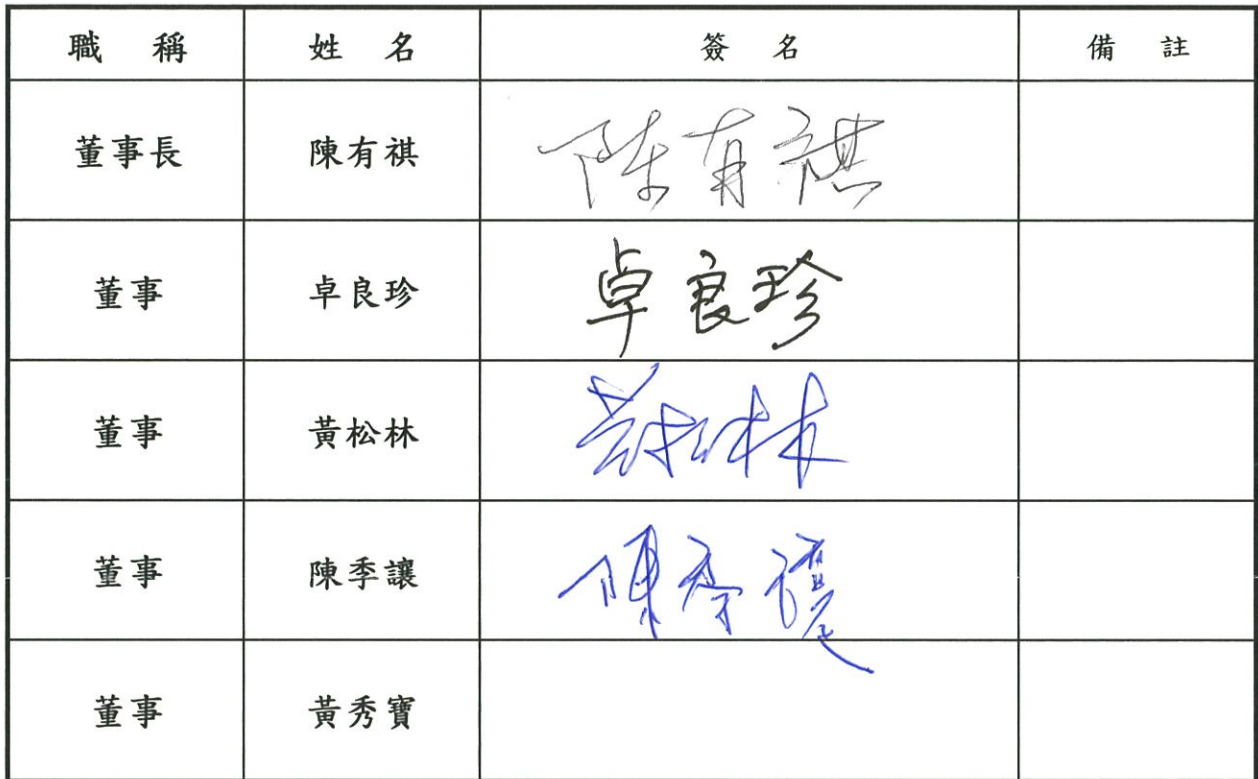 職稱 姓名 簽名 備註
董事長 陳有祺 陳有祺
董事 卓良珍 卓良珍
董事 黃松林 黃松林
董事 陳季讓 陳季讓
董事 黃秀寶